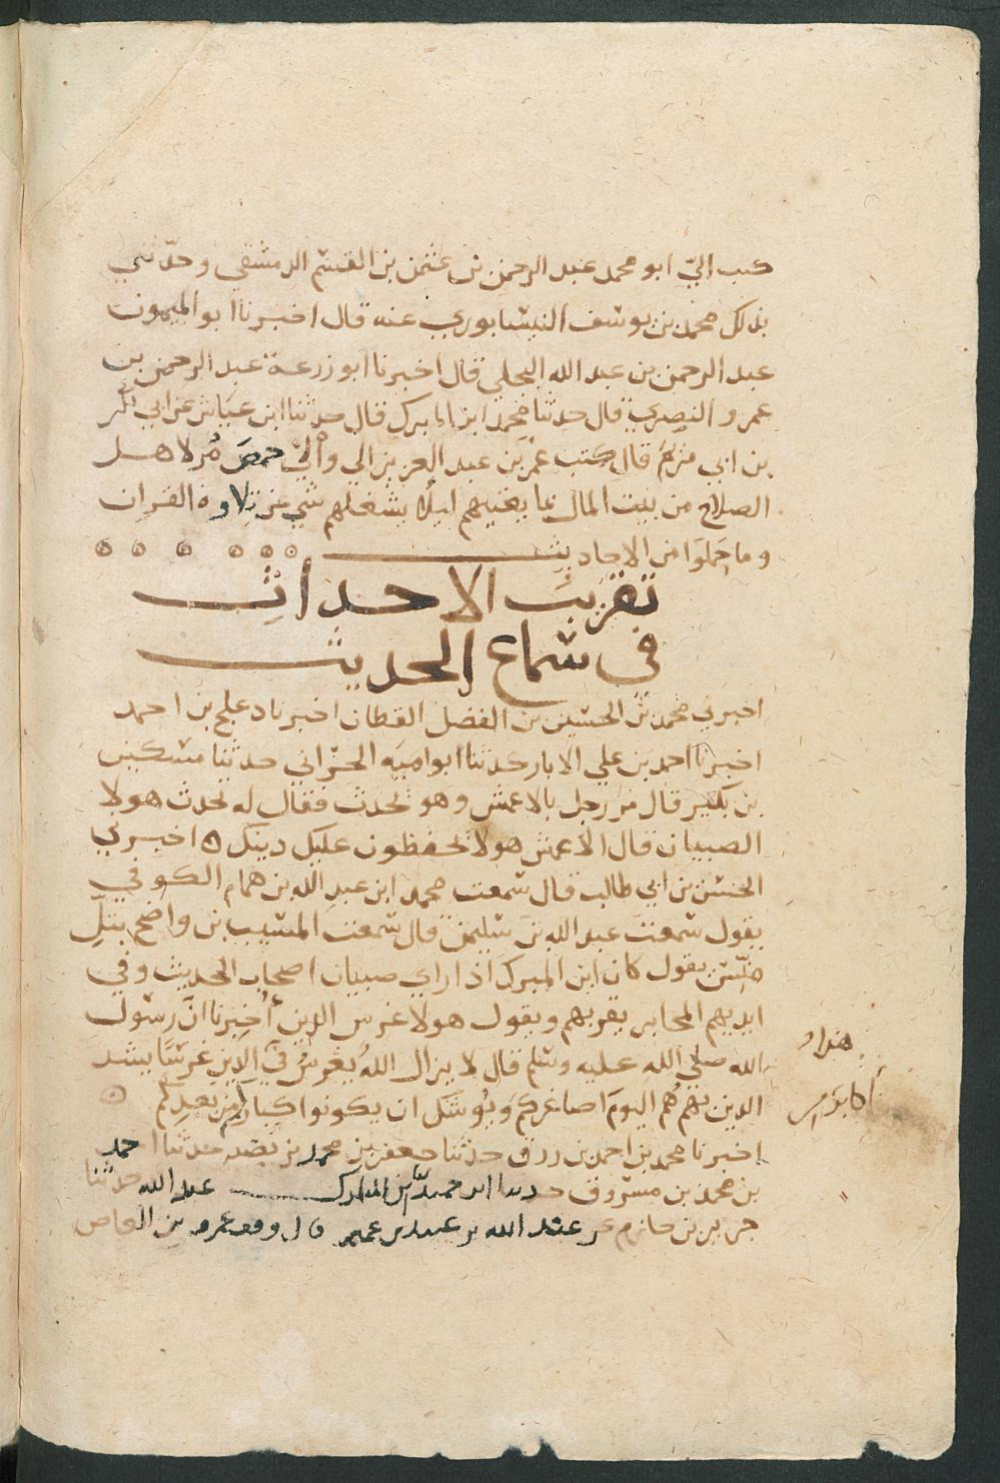 كتب الي ابو محمد عبد الرحمن بن عثمن بن القسم الدمشقي وحدثني
بذلك محمد بن يوسف النيسابوري عنه قال اخبرنا ابو الميمون
عبد الرحمن بن عبد الله البجلي قال اخبرنا ابو زرعة عبد الرحمن بن
عمرو النصري قال حدثنا محمد ابن المبرك قال حدثنا ابن عياش عن ابي بكر
بن ابي مريم قال كتب عمر بن عبد العزيز الي والي حمص مر لاهل
الصلاح من بيت المال بما يغنيهم ليلا يشغلهم شي عن تلاوة القران
وما حملوا من الاحاديث
تقريب الاحداث
في سماع الحديث
اخبرني محمد بن الحسين بن الفضل القطان اخبرنا دعلج بن احمد
اخبرنا احمد بن علي الابار حدثنا ابو امية الحراني حدثنا مسكين
بن بكير قال مر رجل بالاعمش وهو يحدث فقال له تحدث هولا
الصبيان قال الاعمش هولا يحفظون عليك دينك ه اخبرني
الحسن بن ابي طالب قال سمعت محمد ابن عبد الله بن همام الكوفي
يقول سمعت عبد الله بن سليمن قال سمعت المسيب بن واضح بتل
منس يقول كان ابن المبرك اذا راي صبيان اصحاب الحديث وفي
ايديهم المحابر يقربهم ويقول هولا غرس الدين أخبرنا ان رسول
الله صلي الله عليه وسلم قال لا يزال الله يغرس في الدين غرسا يشد
الدين بهم هم اليوم اصاغركم ويوشك ان يكونوا كباركم من بعدكم
اخبرنا محمد بن احمد بن رزق حدثنا جعفر بن محمد بن نصير حدثنا احمد
بن محمد بن مسروق حدثنا ابن حميد ابن المبارك عبد الله حدثنا
جرير بن حازم عن عبد الله بن عبيد بن عمير قال وقف عمرو بن العاص